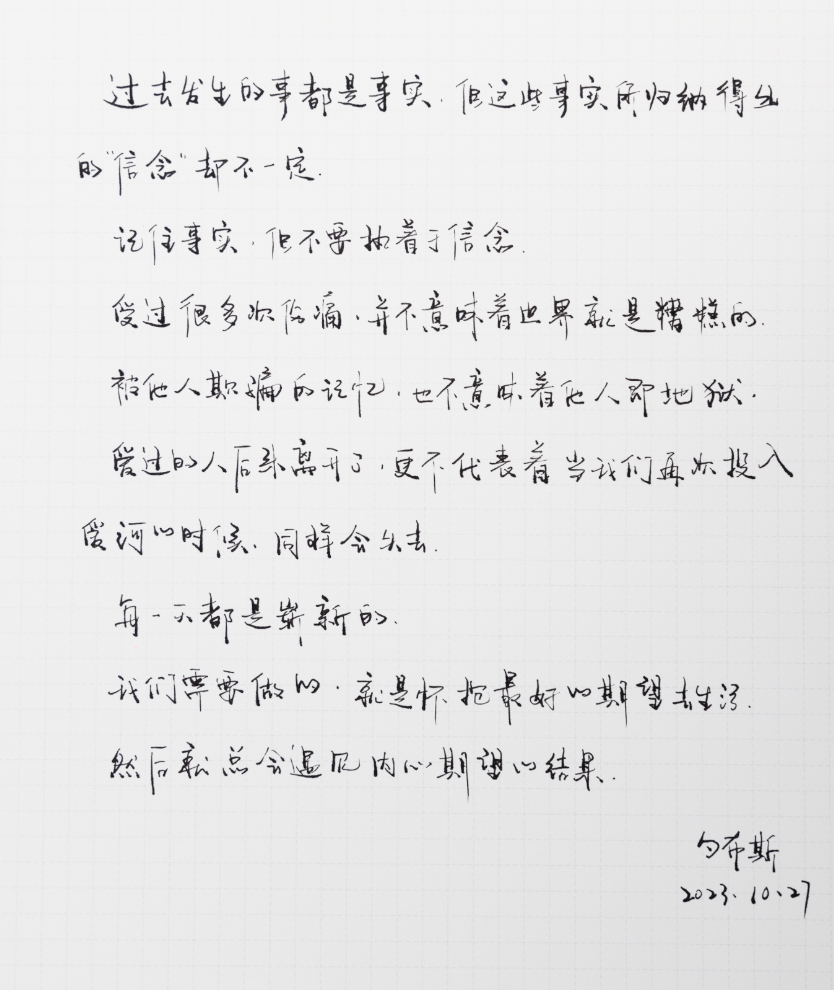 过去发生的事都是事实.但这些事实所归纳得出
的"信念"却不一定.
记住事实.但不要执着于信念.
受过很多次伤痛.并不意味着世界就是糟糕的.
被他人欺骗的记忆.也不意味着他人即地狱.
爱过的人后来离开了.更不代表着当我们再次投入
爱河的时候.同样会失去.
每一天都是崭新的.
我们需要做的.就是怀抱最好的期望去生活.
然后就总会遇见内心期望的结果.
勺布斯
2023.10.27